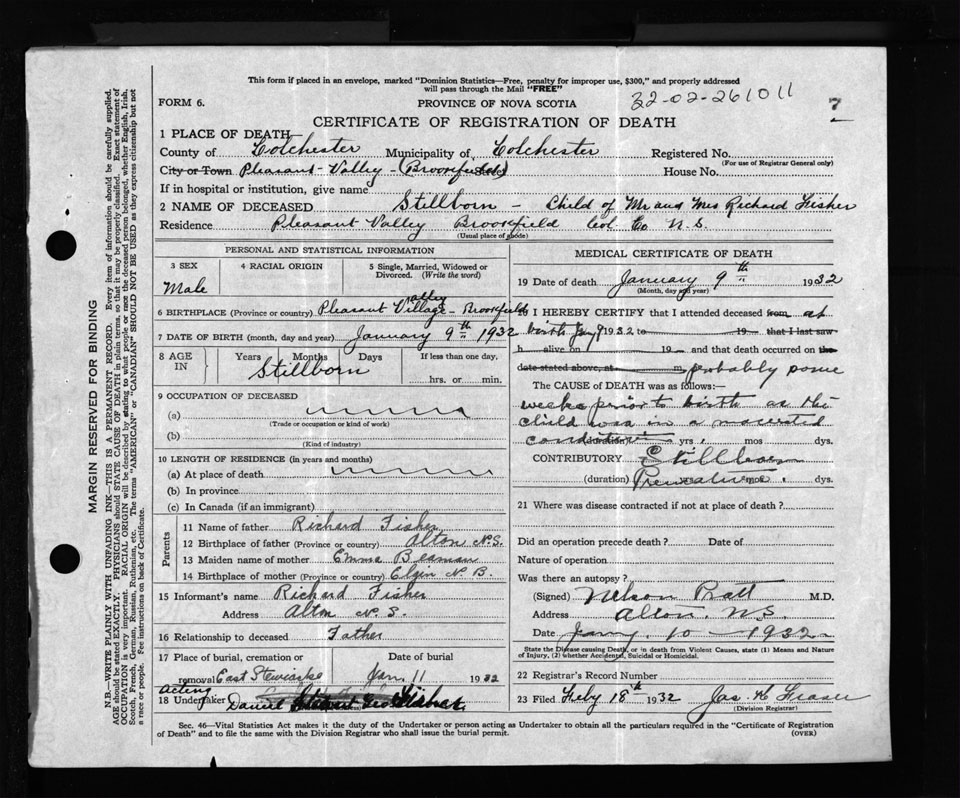 This form if placed in an envelope, marked "Dominion Statistics—Free, penalty for improper use, $300," and properly addressed
will pass through the Mail "FREE"
FORM 6.
PROVINCE OF NOVA SCOTIA
32-02-261011
7
CERTIFICATE OF REGISTRATION OF DEATH
1 PLACE OF DEATH
County of Colchester Municipality of Colchester Registered No.
(For use of Registrar General only)
City or Town Pleasant-Valley - (Brookfield) House No.
If in hospital or institution, give name
2 NAME OF DECEASED Stillborn - Child of Mr and Mrs Richard Fisher
Residence Pleasant Valley Brookfield Col. Co N.S.
(Usual place of abode)
PERSONAL AND STATISTICAL INFORMATION
3 SEX
Male
4 RACIAL ORIGIN
5 Single, Married, Widowed or
Divorced. (Write the word)
6 BIRTHPLACE (Province or country) Pleasant Village Valley - Brookfield
7 DATE OF BIRTH (month, day and year) January 9th 1932
8 AGE IN
Years Months Days
Stillborn
If less than one day,
hrs. or min.
9 OCCUPATION OF DECEASED
(a)
(Trade or occupation or kind of work)
(b)
(Kind of industry)
10 LENGTH OF RESIDENCE (in years and months)
(a) At place of death
(b) In province
(c) In Canada (if an immigrant)
Parents
11 Name of father Richard Fisher
12 Birthplace of father (Province or country) Alton N.S.
13 Maiden name of mother Emma Beaman
14 Birthplace of mother (Province or country) Elgin N.B.
15 Informant's name Richard Fisher
Address Alton N.S.
16 Relationship to deceased Father
17 Place of burial, cremation or Date of burial
removal East Stewiacke Jan. 11 1932
Acting
18 Undertaker Daniel
MEDICAL CERTIFICATE OF DEATH
19 Date of death January 9th 1932
(Month, day and year)
20 I HEREBY CERTIFY that I attended deceased from at
birth Jan 9 1932 to 19 that I last saw
h alive on 19 and that death occurred on the
date stated above, at m. probably some
The CAUSE OF DEATH was as follows:—
weeks prior to birth as the
child was in a macerated
condition yrs. mos dys.
CONTRIBUTORY Stillborn
(duration) Premature mos. dys.
21 Where was disease contracted if not at place of death?
Did an operation precede death? Date of
Nature of operation
Was there an autopsy?
(Signed) Nelson Pratt M.D.
Address Alton, N.S
Date Jany. 10 - 1932
State the Disease causing Death, or in death from Violent Causes, state (1) Means and Nature
of Injury, (2) whether Accidental, Suicidal or Homicidal.
22 Registrar's Record Number
23 Filed Feby 18th 1932 Jas. H Fraser
(Division Registrar)
Sec. 46—Vital Statistics Act makes it the duty of the Undertaker or person acting as Undertaker to obtain all the particulars required in the "Certificate of Registration
of Death" and to file the same with the Division Registrar who shall issue the burial permit.
(OVER)
MARGIN RESERVED FOR BINDING
N.B.—WRITE PLAINLY WITH UNFADING INK—THIS IS A PERMANENT RECORD. Every item of information should be carefully supplied.
AGE should be stated EXACTLY. PHYSICIANS should STATE CAUSE OF DEATH in plain terms, so that it may be properly classified. Exact statement of
OCCUPATION is very important. RACIAL ORIGIN will be described by stating to what people or race the deceased person belonged, whether English, Irish,
Scotch, French, German, Russian, Ruthenian, etc. The terms "AMERICAN" or "CANADIAN" SHOULD NOT BE USED as they express citizenship but not
a race or people. See instructions on back of Certificate.